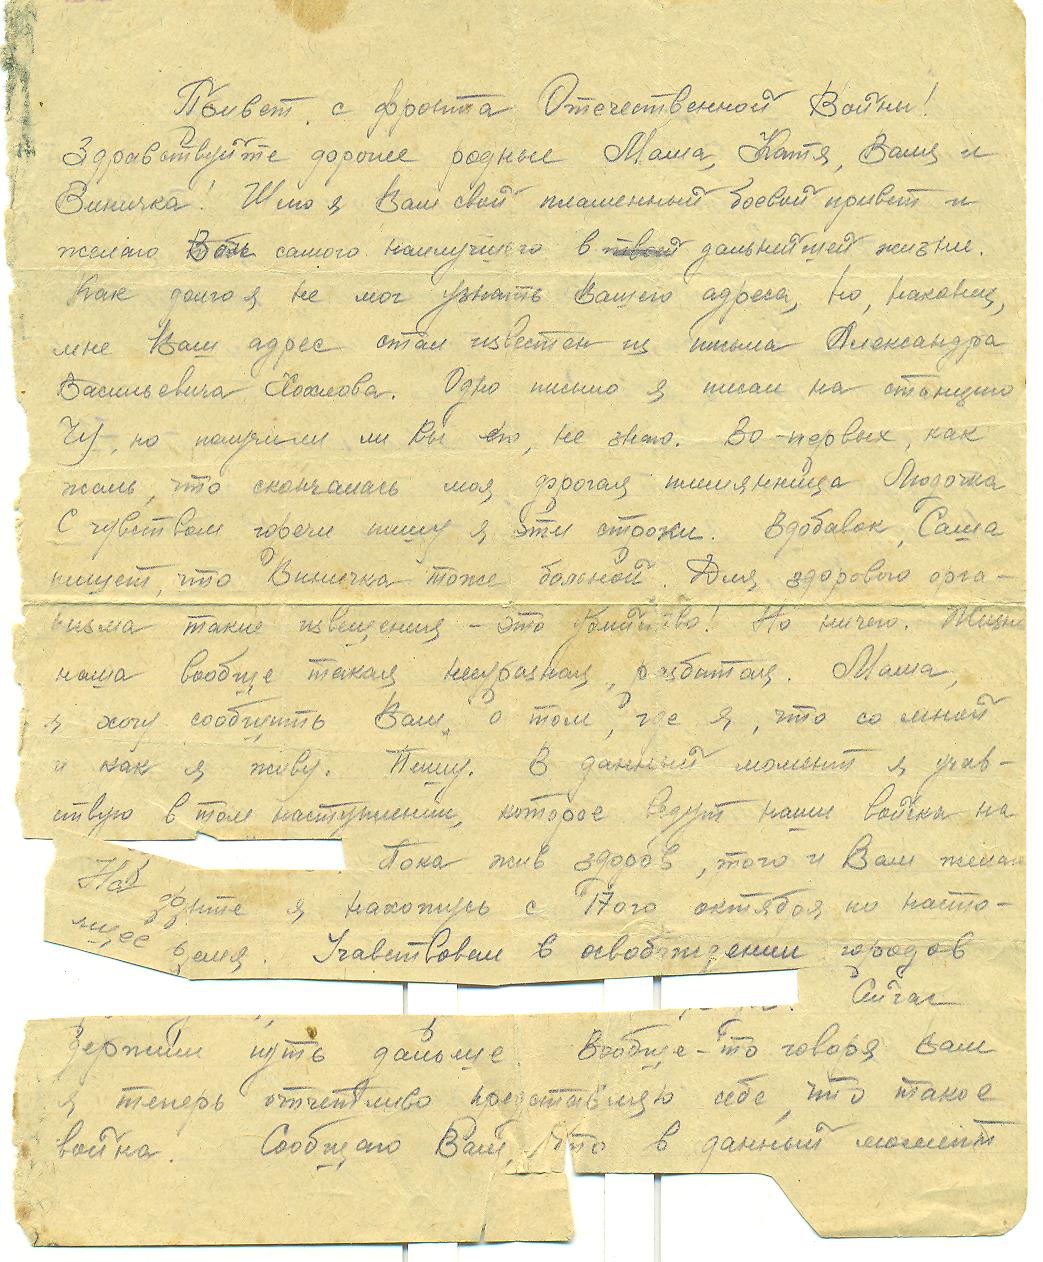 Привет с фронта Отечественной Войны!
Здравствуйте дорогие родные Маша, Катя, Валя и
Виничка! Шлю я Вам свой пламенный боевой привет и
желаю Вам самого наилучшего в твоей дальнейшей жизни.
Как долго я не мог узнать Вашего адреса, но, наконец,
мне Ваш адрес стал известен из письма Александра
Васильевича Хохлова. Одно письмо я писал на станцию
Чу, но получили ли Вы его, не знаю. Во-первых, как
жаль, что скончалась моя дрогая племянница Людочка
С чувством горечи пишу я эти строки. Вдобавок, Саша
пишет, что Виничка тоже больной. Для здорового орга-
низма такие извещения - это убийство! Но ничего. Жизнь
наша вообще такая несуразная, разбитая. Маша,
я хочу сообщить Вам о том, где я, что со мной
и как я живу. Пишу. В данный момент я учав-
ствую в том наступлении, которое ведут наши войска на
Пока жив здоров, того и Вам желаю
На
фронте я нахожусь с 17ого октября по насто-
ящее время. Учавствовал в освобождении городов
Сейчас
держим путь дальше Вообще-то говоря Вам
я теперь отчетливо представляю себе, что такое
война. Сообщаю Вам, что в данный момент